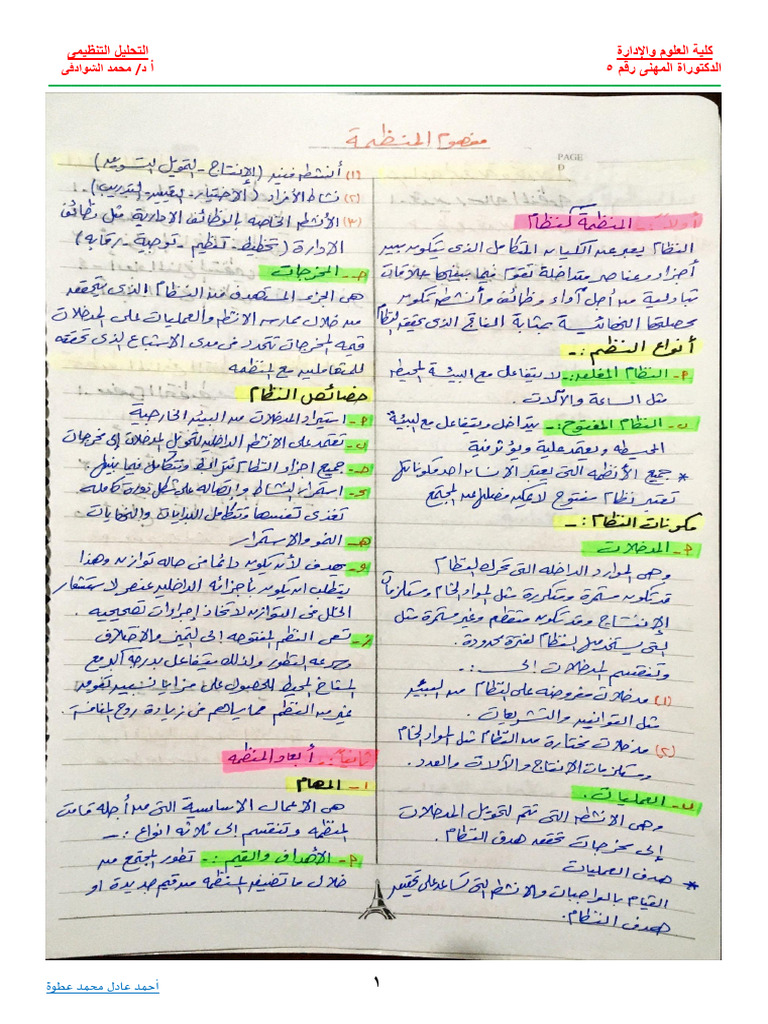 كلية العلوم والإدارة
التحليل التنظيمى
الدكتوراة المهنى رقم ٥
أ د/ محمد الشوادفى
مفهوم المنظمة
PAGE
D
أولاً:- المنظمة كنظام
النظام يعبر عن الكيان المتكامل الذى يتكون بين
أجزاء وعناصر متداخلة تقوم فيما بينها علاقات
تبادلية من أجل أداء وظائف وأنشطة تكون
محصلتها النهائية بمثابة الناتج الذى يحققه النظام
أنواع النظم:-
أ- النظام المغلق:- لا يتفاعل مع البيئة المحيطة
مثل الساعة والآلات.
ب- النظام المفتوح:- يتداخل ويتفاعل مع البيئة
المحيطه ويعتمد عليه ويؤثر فيه
* جميع الأنظمه التى يعتبر الانسان احد مكوناتها
تعتبر نظام مفتوح لا يمكن فصلها عن المجتمع
مكونات النظام:-
أ- المدخلات
وهى الموارد الداخله التى تحرك النظام
قد تكون مستمرة ومتكررة مثل المواد الخام ومستلزمات
الإنتاج وقد تكون متقطعه وغير مستمرة مثل
التى يستخدمها النظام لفترة محدودة.
وتنقسم المدخلات إلى:-
(١) مدخلات مفروضه على النظام من البيئه
مثل القوانين والتشريعات.
(٢) مدخلات مختارة من النظام مثل المواد الخام
ومستلزمات الانتاج والآلات والعدد.
ب- العمليات.
وهى الأنشطه التى تتم لتحويل المدخلات
إلى مخرجات تحقق هدف النظام.
* هدف العمليات
القيام بالواجبات والانشطه التى تساعد على تحقيق
هدف النظام.
(١) أنشطه فنيه (الإنتاج - التمويل التسويق)
(٢) نشاط الأفراد (الاختيار - التقييم - التدريب).
(٣) الأنشطه الخاصه بالوظائف الادارية مثل وظائف
الادارة (تخطيط - تنظيم - توجيه - رقابه)
ج- المخرجات
هى الجزء المستهدف من النظام الذى يتحقق
من خلال ممارسه الانشطه والعمليات على المدخلات
قيمه المخرجات تتحدد من مدى الاشباع الذى تحققه
للمتعاملين مع المنظمه
خصائص النظام
أ- استيراد المدخلات من البيئه الخارجية
ب- تعتمد على الانشطه الداخليه لتحويل المدخلات إلى مخرجات
ج- جميع اجزاء النظام تترابط وتتكامل فيما بينها
د- استمرار النشاط واتصاله على شكل دورات كامله
تغذى نفسها وتتكامل البدايات والنهايات
هـ- النمو والاستمرار
و- يهدف لأن يكون دائما فى حاله توازن وهذا
يتطلب ان يكون بأجزائه الداخليه عنصر لاستشعار
الخلل فى التوازن لاتخاذ إجراءات تصحيحيه.
ز- تسعى النظم المفتوحه إلى التميز والاختلاف
وسرعه التطور ولذلك تتفاعل بدرجه أكبر مع
المناخ المحيط للحصول على مزايا نسبيه تفوق
غيره من النظم مما يساهم فى زيادة روح المنافسة.
ثانياً:- أبعاد المنظمه
١- المهام
هى الاعمال الاساسية التى من أجله قامت
المنظمه وتنقسم إلى ثلاثه انواع:-
أ- الأهداف والقيم:- تطور المجتمع من
خلال ما تضيفه المنظمه من قيم جديدة او
١
أحمد عادل محمد عطوة